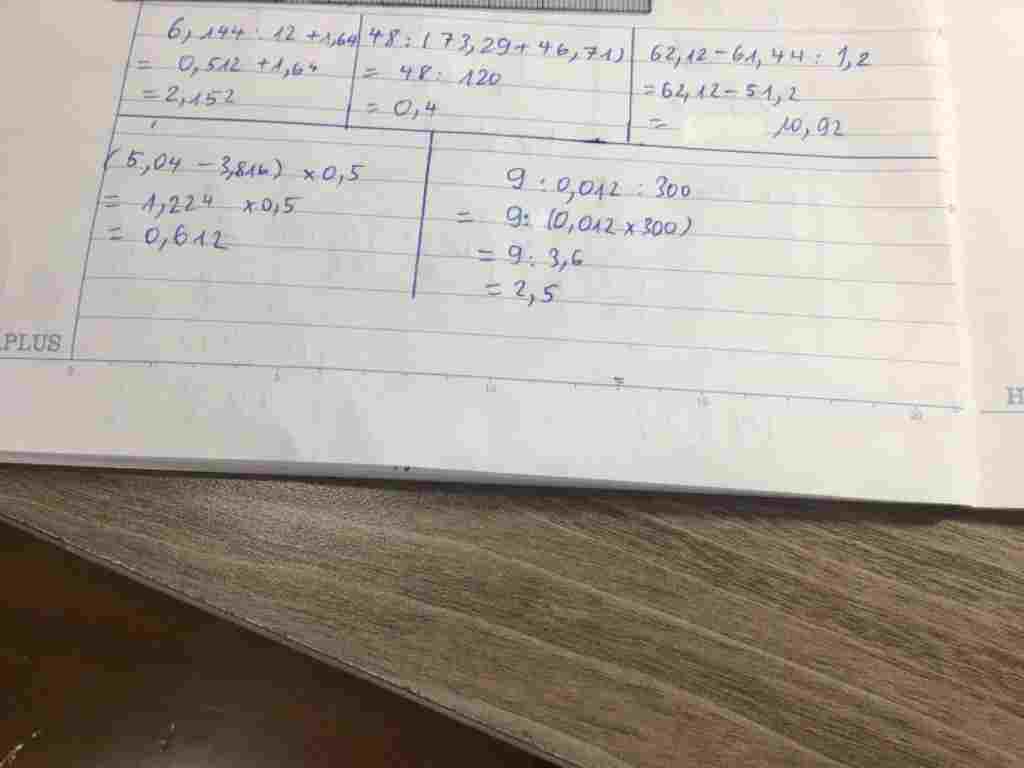 6,144 : 12 + 1,64
= 0,512 + 1,64
= 2,152
48 : (73,29 + 46,71)
= 48 : 120
= 0,4
62,12 - 61,44 : 1,2
= 62,12 - 51,2
= 10,92
(5,04 - 3,816) x 0,5
= 1,224 x 0,5
= 0,612
9 : 0,012 : 300
= 9 : (0,012 x 300)
= 9 : 3,6
= 2,5
PLUS
0 5 10 15 20
H